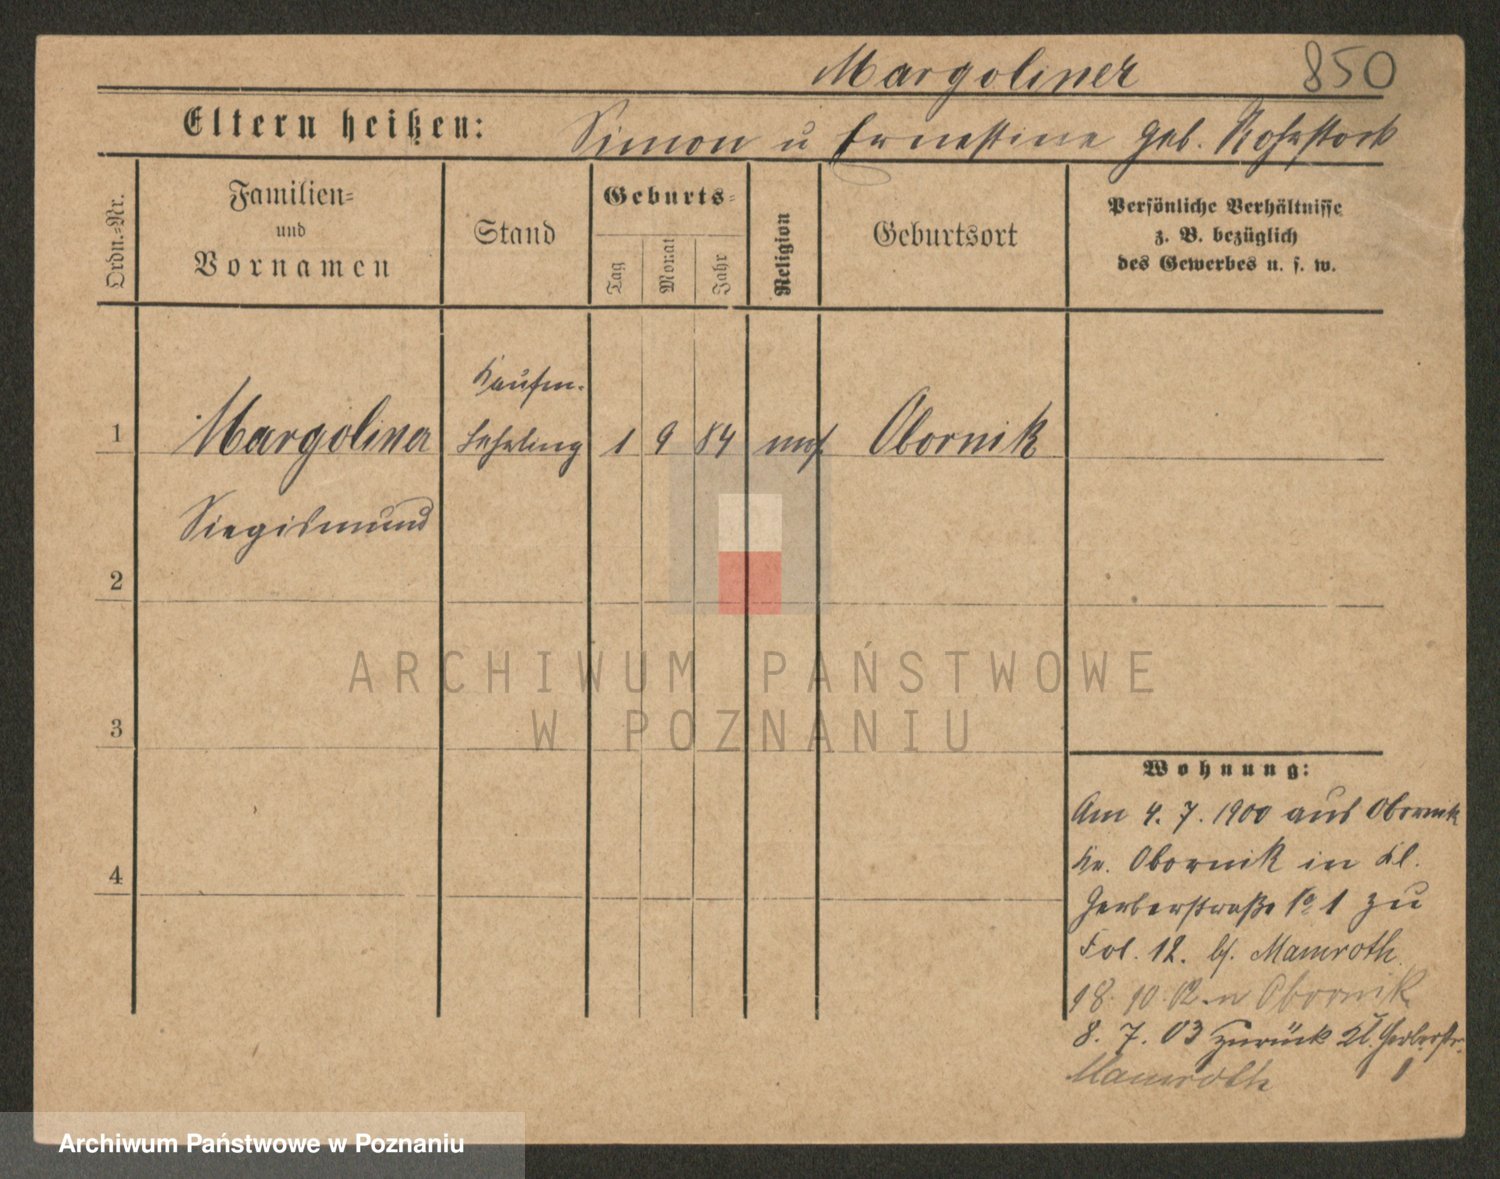 Margoliner 850
Eltern heißen: Simon u Ernestine geb. Rohrstock
Ordn.-Nr.
Familien-
und
Vornamen
Stand
Geburts-
Tag
Monat
Jahr
Religion
Geburtsort
Persönliche Verhältnisse
z. B. bezüglich
des Gewerbes u. s. w.
Kaufm.
1 Margoliner Lehrling 1 9 84 mos. Obornik
Siegismund
2
ARCHIWUM PAŃSTWOWE
W POZNANIU
3
Wohnung:
Am 4. 7. 1900 aus Obornik
Kr. Obornik in Kl.
4
Gerberstraße No 1 zu
Fol. 12. bs. Mamroth.
18. 10. 02 n Obornik
8. 7. 03 zurück Kl. Gerberstr.
Mamroth 1
Archiwum Państwowe w Poznaniu